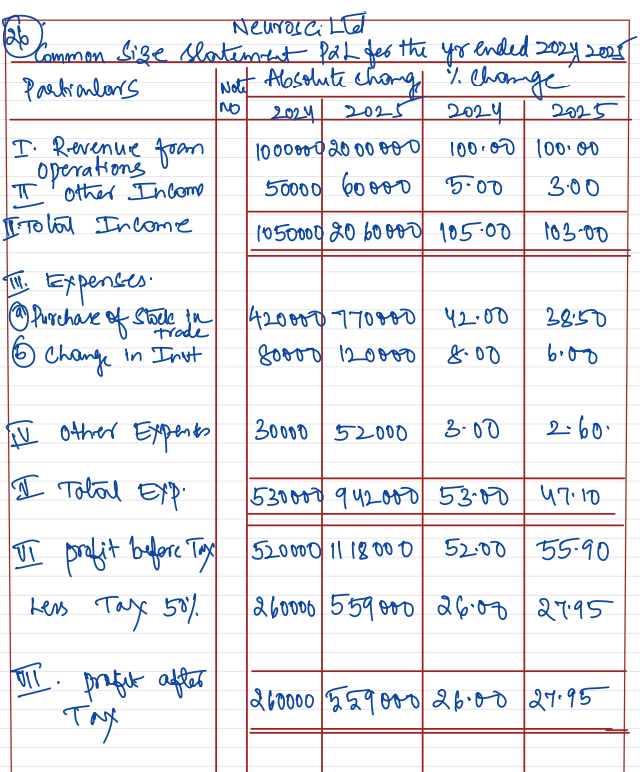 26 Neurosci Ltd
Common Size Statement P&L for the yr ended 2024, 2025
Particulars Note No Absolute change % Change
2024 2025 2024 2025
I. Revenue from operations 1000000 2000000 100.00 100.00
II Other Income 50000 60000 5.00 3.00
II. Total Income 1050000 2060000 105.00 103.00
III. Expenses.
(a) Purchase of Stock in trade 420000 770000 42.00 38.50
(b) Change in Invt 80000 120000 8.00 6.00
IV Other Expenses 30000 52000 3.00 2.60.
V Total Exp. 530000 942000 53.00 47.10
VI profit before Tax 520000 1118000 52.00 55.90
Less Tax 50% 260000 559000 26.00 27.95
VII. profit after Tax 260000 559000 26.00 27.95